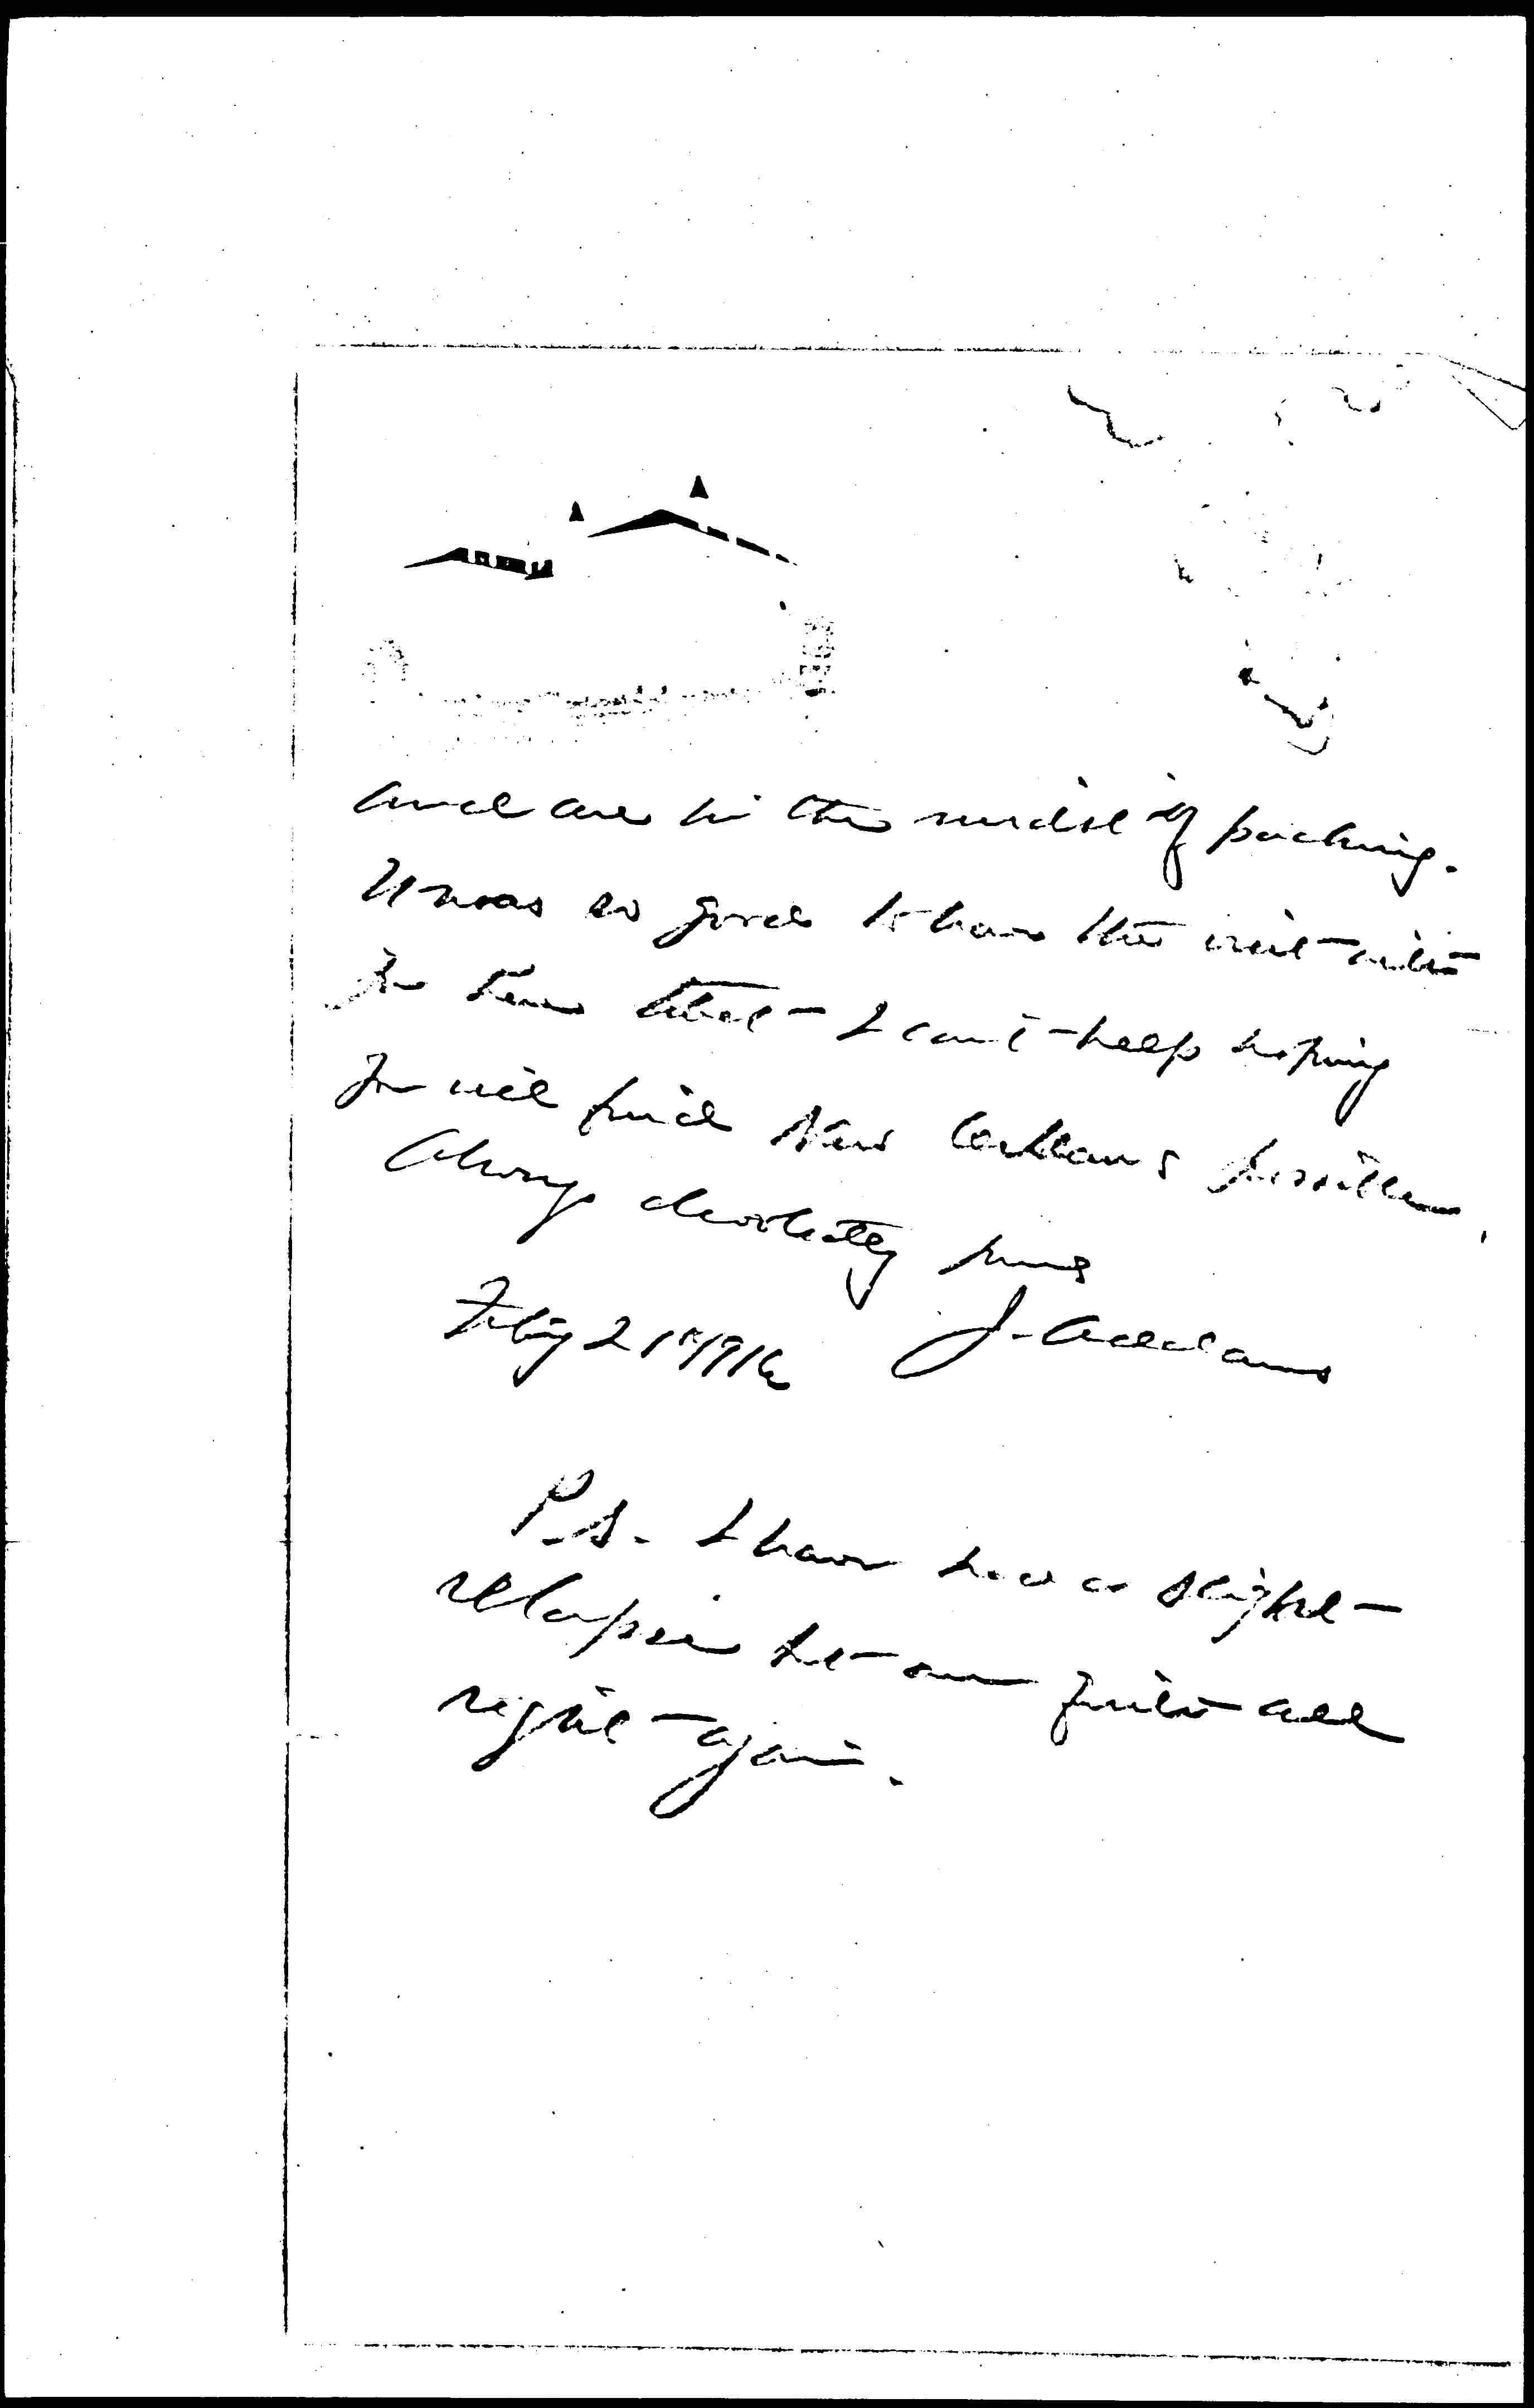 and are in the midst of packing.
It was so good to have the visit with
you dear that I can't help hoping
you will find New Orleans possible.
Always devotedly yours
J. Addams
Feby 21" 1916
P.S. I have had a slight
relapse but am quite all
right again.